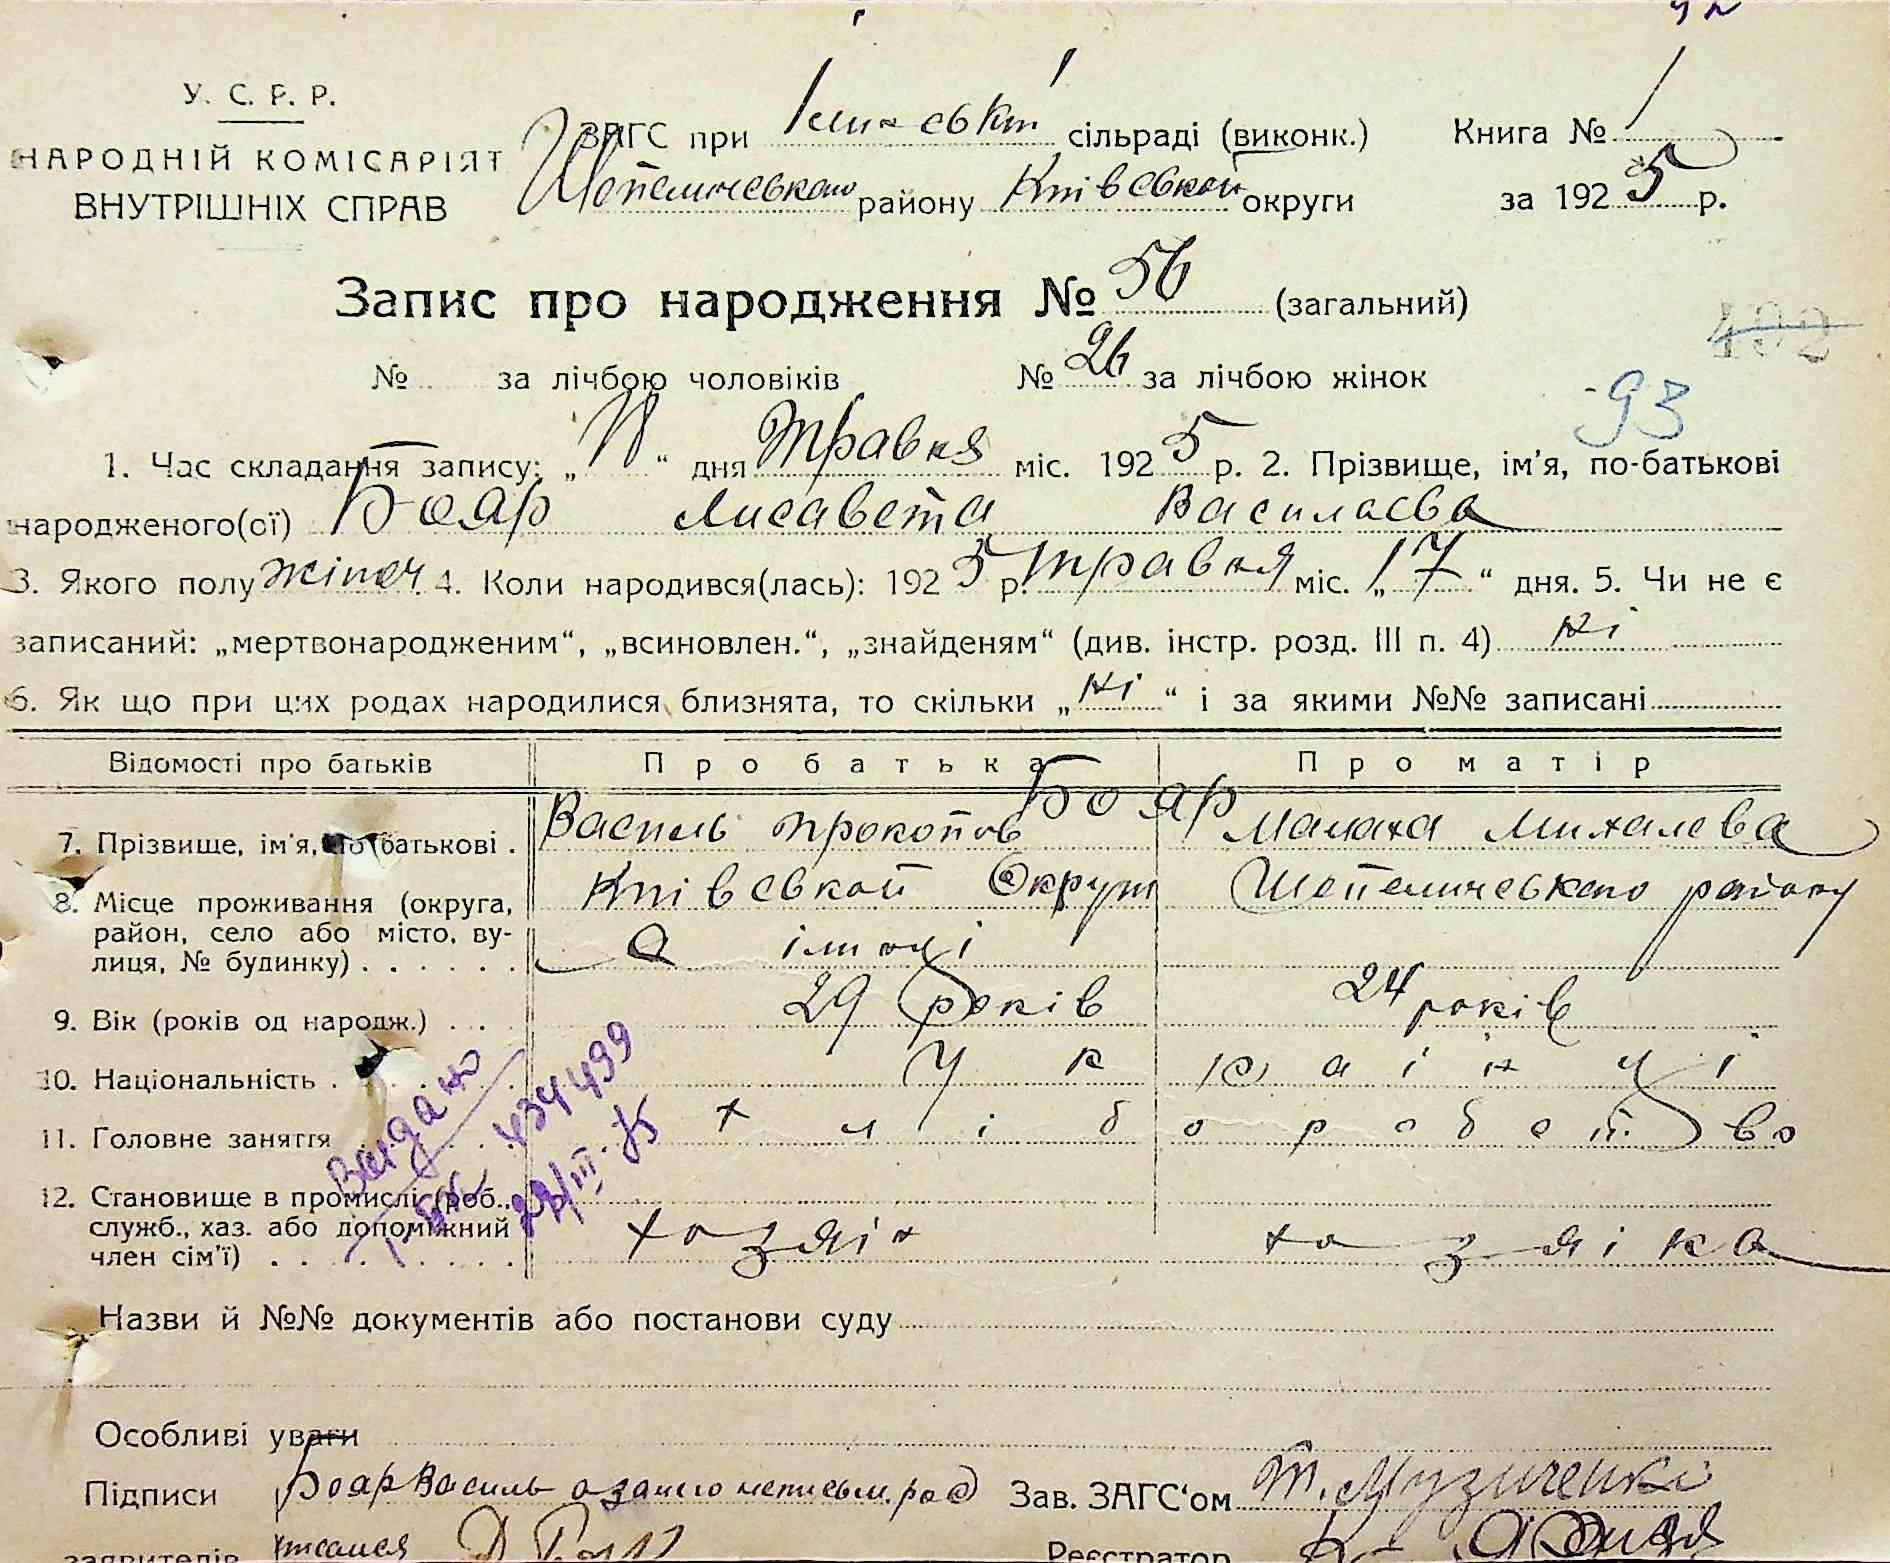 У. С. Р. Р.
НАРОДНІЙ КОМІСАРІЯТ
ВНУТРІШНІХ СПРАВ
ЗАГС при сільраді (виконк.) Книга № 1
Шепелическом району Київської округи за 1925 р.
Запис про народження № 56 (загальний)
№ за лічбою чоловіків № 26 за лічбою жінок
492
93
1. Час складання запису: „ “ дня Травня міс. 1925 р. 2. Прізвище, ім’я, по-батькові
народженого(ої) Бояр Лисавета Василаева
3. Якого полу жіноч. 4. Коли народився(лась): 1925 р. травня міс. „17“ дня. 5. Чи не є
записаний: „мертвонародженим“, „всиновлен.“, „знайденям“ (див. інстр. розд. III п. 4) ні
6. Як що при цих родах народилися близнята, то скільки „ні“ і за якими №№ записані
Відомості про батьків Про батька Про матір
Бояр
7. Прізвище, ім’я, по батькові . Василь Прокопов Малаха Михалева
8. Місце проживання (округа, Київської Округи Шепелическаго району
район, село або місто, ву-
лиця, № будинку) . . . . . . с ілинці
9. Вік (років од народж.) . . . 29 років 24 років
10. Національність . . . . . Українці
11. Головне заняття . . . . . хліборобство
12. Становище в промислі (роб.,
служб., хаз. або допоміжний
член сім’ї) . . . . . . . . . хазяін хазяіка
Видано
434499
29/III-75
Назви й №№ документів або постанови суду
Особливі уваги
Підписи Бояр Василь а за него неписьм. рос Зав. ЗАГС‘ом Т. Музиченко
заявителів писался Д Реєстратор